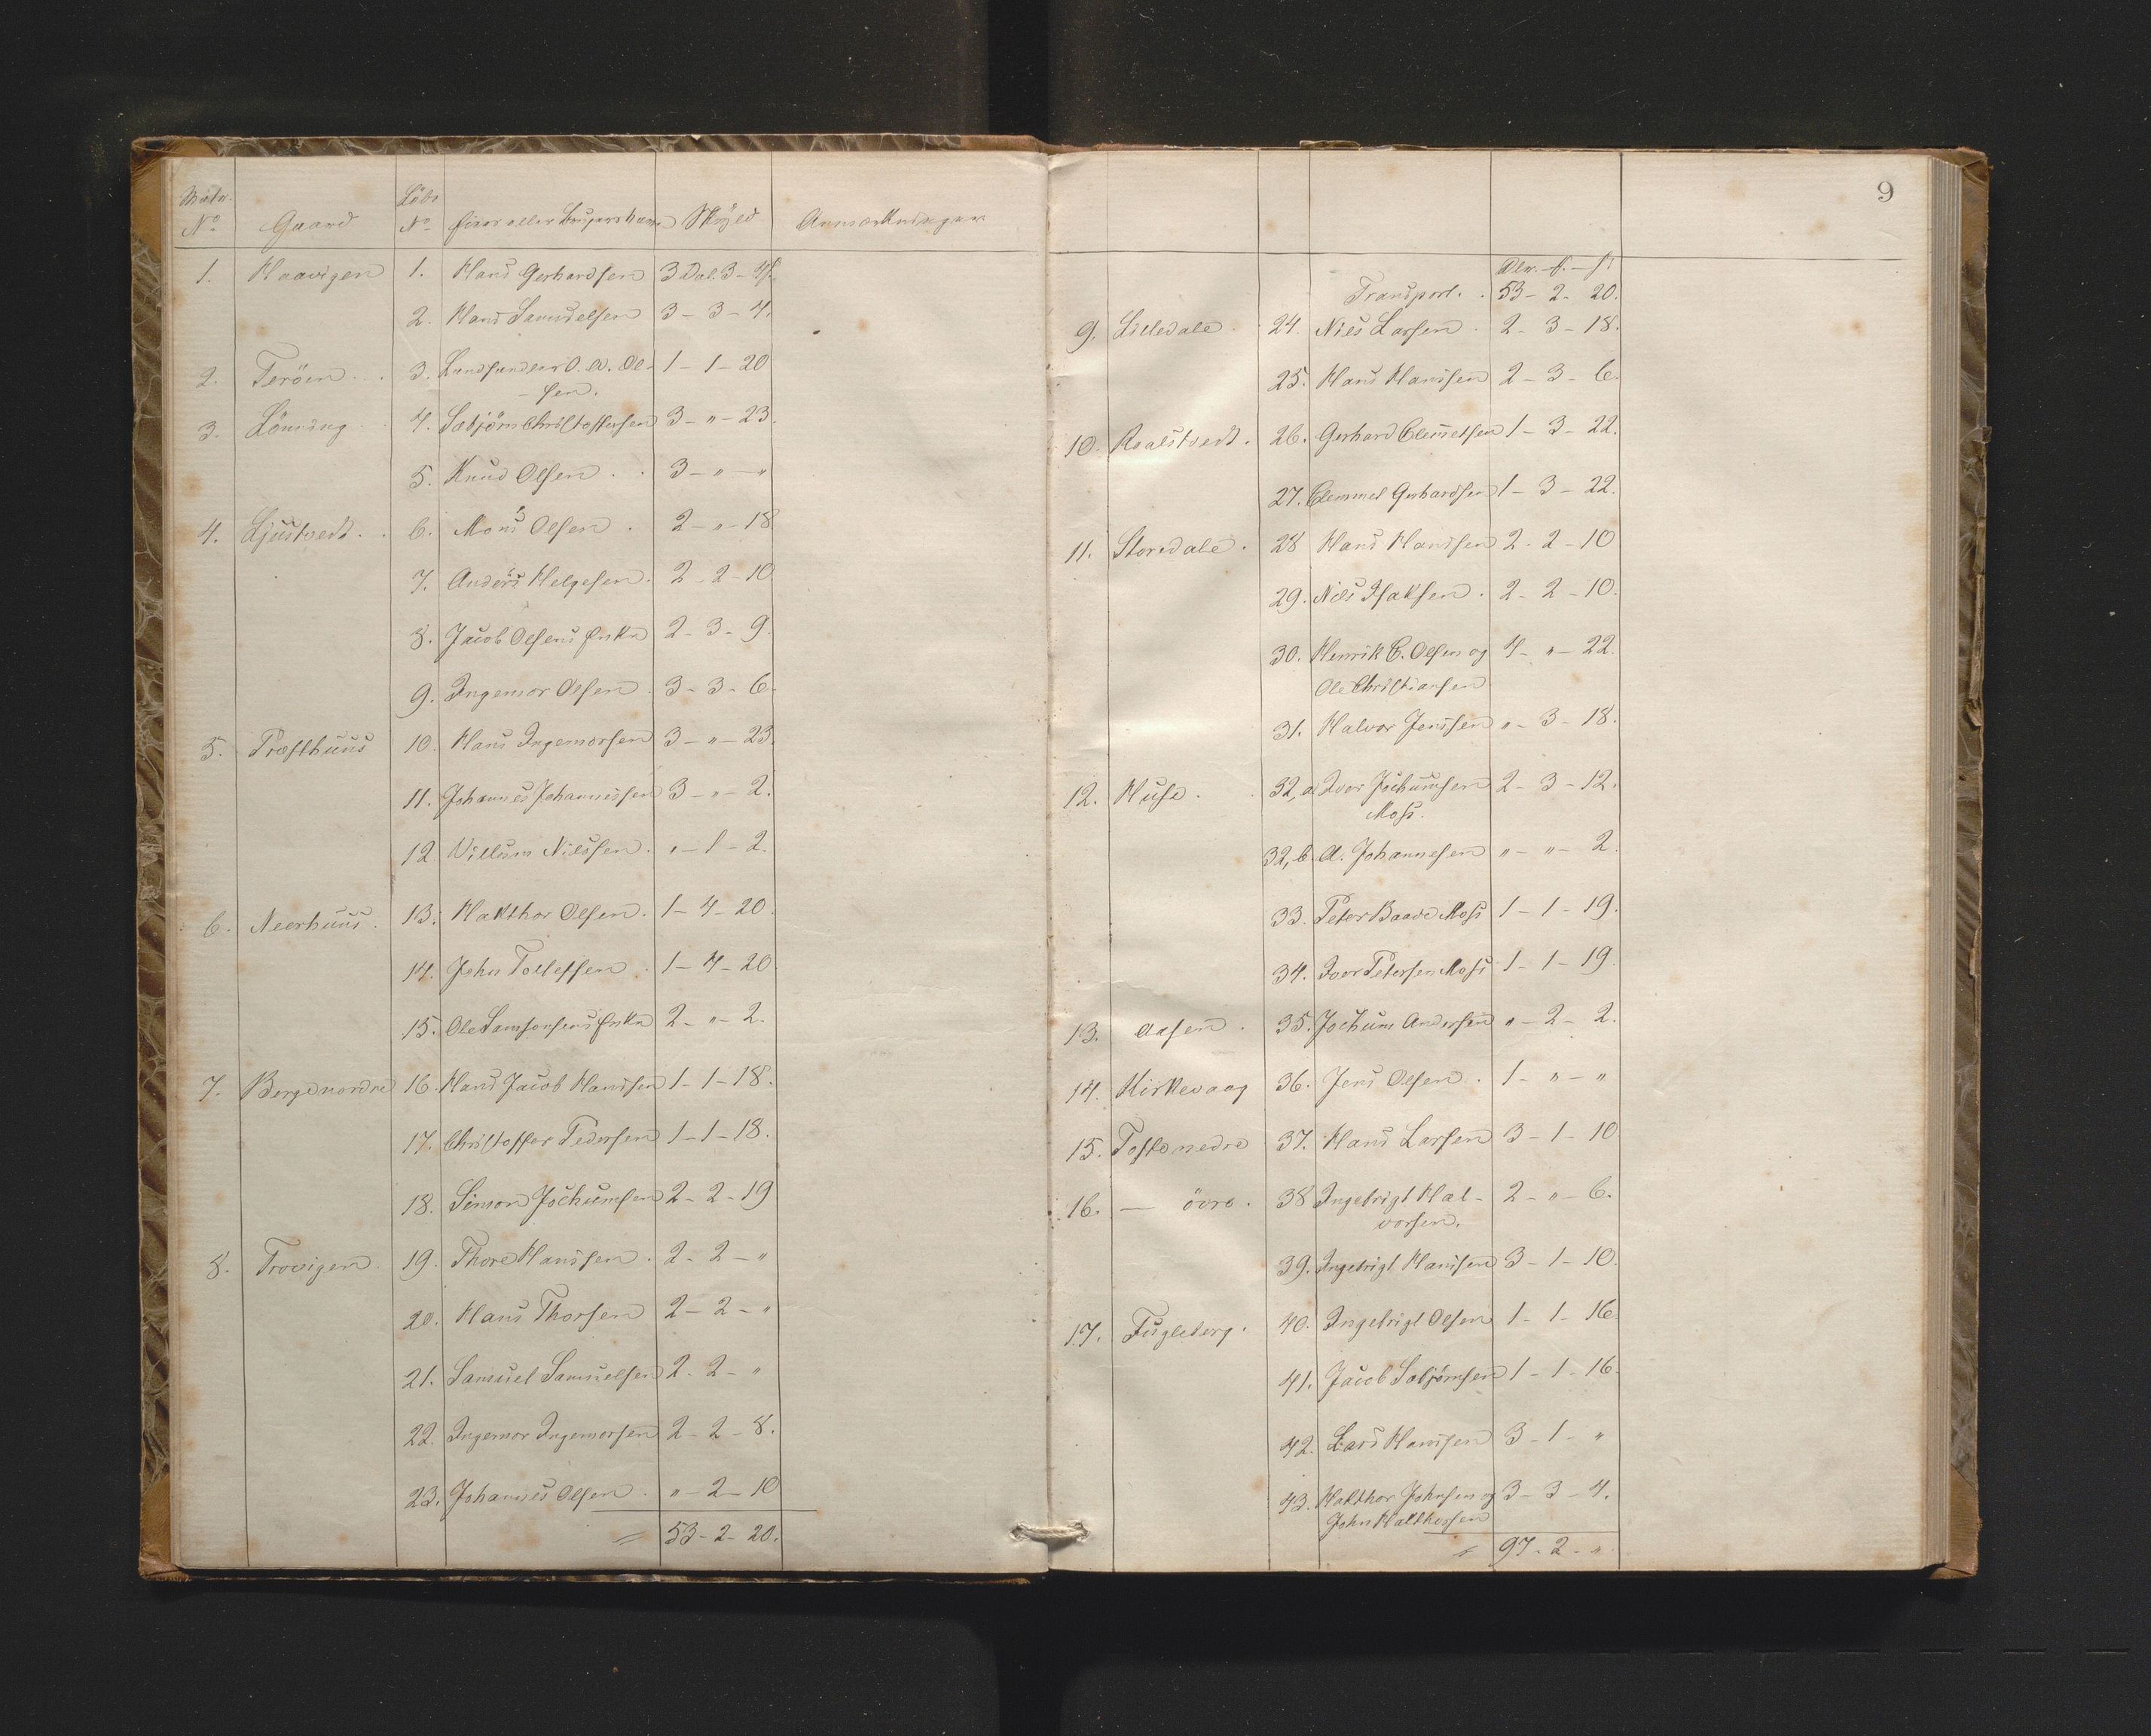 Matr. No Gaard Löbe No Eiers eller Brugers Navn Skyld Anmærkninger
1. Haavigen 1. Hans Gerhardsen 3 Dal. 3 - 4 ß.
2. Hans Samuelsen 3 - 3 - 4.
2. Teröen . . 3. Landhandler O. A. Ol- 1 - 1 - 20
- sen.
3. Lönning . 4. Sæbjörn Christoffersen 3 - " - 23.
5. Knud Olsen . . 3 - " - "
4. Ljustvedt . . 6. Mons Olsen . 2 - " - 18
7. Anders Helgesen . 2 - 2 - 10
8. Jacob Olsens Enke 2 - 3 - 9.
9. Ingemor Olsen . 3 - 3 - 6.
5. Præsthuus 10. Hans Ingemorsen 3 - " - 23.
11. Johannes Johannessen 3 - " - 2.
12 Villum Nilssen . " - 1 - 2.
6. Neerhuus . 13. Halthor Olsen . 1 - 4 - 20.
14. John Tollefsen . 1 - 4 - 20
15. Ole Samsonsens Enke 2 - " - 2.
7. Berge nordre 16. Hans Jacob Hanssen 1 - 1 - 18.
17. Christoffer Pedersen 1 - 1 - 18.
18. Simon Jochumsen 2 - 2 - 19
8. Trovigen . 19. Thore Hanssen . 2 - 2 - "
20. Hans Thorsen 2 - 2 - "
21. Samuel Samuelsen 2 - 2 - "
22. Ingemor Ingemorsen 2 - 2 - 8.
23. Johannes Olsen . " - 2 - 10
53 - 2 - 20.
9
Dlr. - ß.
Transport . . 53 - 2 - 20.
9. Lilledale . 24. Nils Larsen . 2 - 3 - 18.
25. Hans Hanssen 2 - 3 - 6.
10. Roalstvedt . 26. Gerhard Clemetsen 1 - 3 - 22.
27. Clemmet Gerhardsen 1 - 3 - 22.
11. Storedale . 28 Hans Hanssen 2 - 2 - 10
29. Nils Isaksen . 2 - 2 - 10.
30. Henrik C. Olsen og 4 - " - 22.
Ole Christiansen
31. Halvor Jenssen " - 3 - 18.
12. Huse . . 32, a Iver Jochumsen 2 - 3 - 12.
Moss.
32, b. A. Johannesen " - " - 2.
33. Peter Baade Moss 1 - 1 - 19.
34. Iver Petersen Moss 1 - 1 - 19.
13. Aasen . 35. Jochum Andersen " - 2 - 2.
14. Kirkevaag 36. Jens Olsen . 1 - " - "
15. Tofte nedre 37. Hans Larsen 3 - 1 - 10
16. — övre . 38 Ingebrigt Hal- 2 - " - 6.
vorsen.
39. Ingebrigt Hansen 3 - 1 - 10.
17. Fugleberg . 40. Ingebrigt Olsen 1 - 1 - 16.
41. Jacob Sæbjörnsen 1 - 1 - 16.
42. Lars Hanssen 3 - 1 - "
43. Halthor Johnsen og 3 - 3 - 4.
John Halthorsen
97 - 2 - "